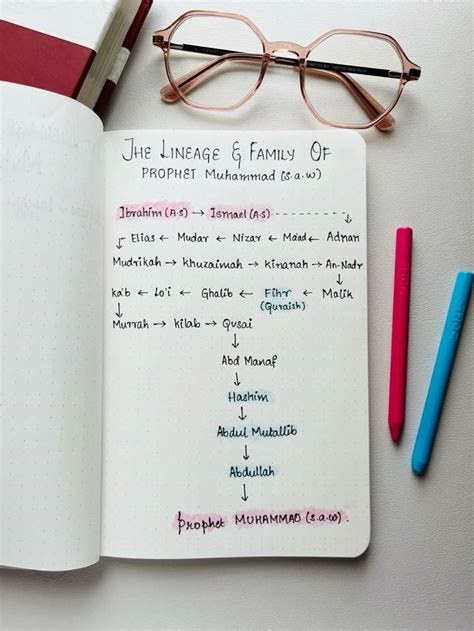 THE LINEAGE & FAMILY OF
PROPHET Muhammad (s.a.w)
Ibrahim (A.S) → Ismael (A.S) ---------- ↓
Elias ← Mudar ← Nizar ← Ma'ad ← Adnan
Mudrikah → khuzaimah → kinanah → An-Nadr
ka'b ← Lo'i ← Ghalib ← Fihr ← Malik
(Quraish)
Murrah → kilab → Qusai
Abd Manaf
Hashim
Abdul Mutallib
Abdullah
Prophet MUHAMMAD (s.a.w).